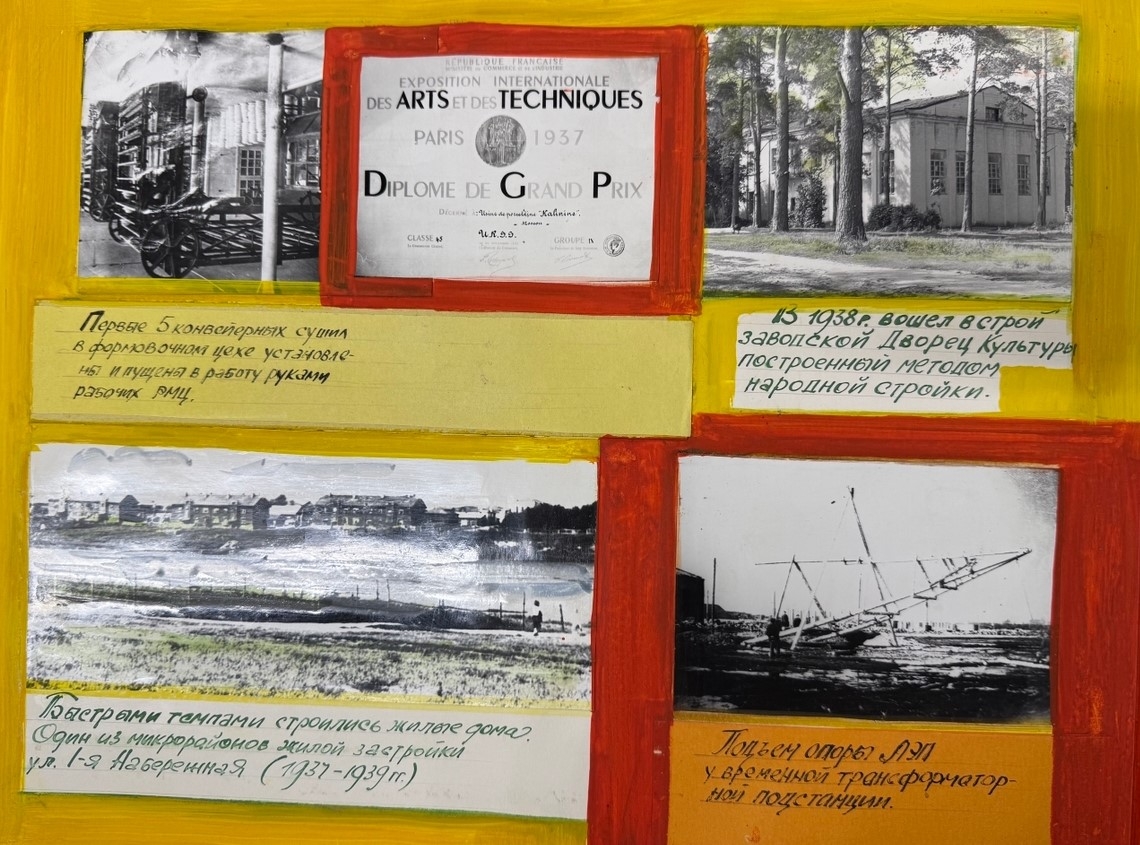 RÉPUBLIQUE FRANÇAISE
MINISTÈRE DU COMMERCE ET DE L'INDUSTRIE
EXPOSITION INTERNATIONALE
DES ARTS ET DES TECHNIQUES
PARIS 1937
DIPLOME DE GRAND PRIX
Décerné à: Usine de porcelaine "Kalinine".
U.R.S.S.
CLASSE 45
GROUPE IX
Первые 5 конвейерных сушил
в формовочном цехе установле-
ны и пущены в работу руками
рабочих РМЦ.
В 1938 г. вошел в строй
заводской Дворец Культуры
построенный методом
народной стройки.
Быстрыми темпами строились жилые дома.
Один из микрорайонов жилой застройки
ул. 1-я Набережная (1937-1939 гг.)
Подъем опоры ЛЭП
у временной трансформатор-
ной подстанции.